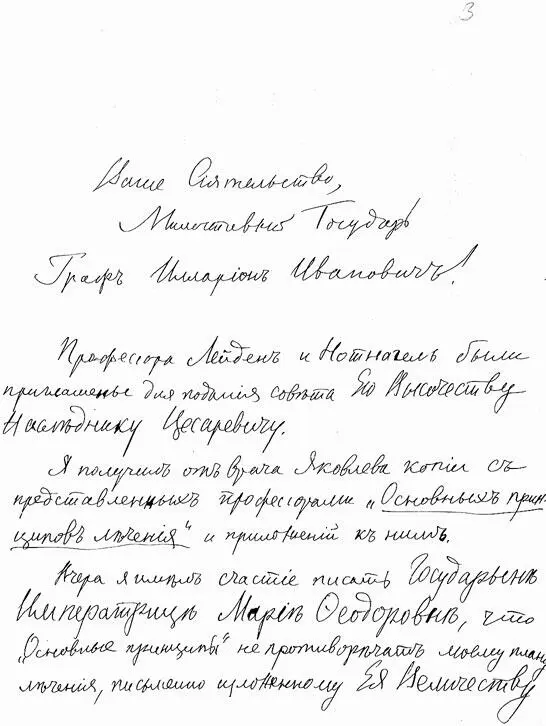 3
Ваше Сіятельство,
Милостивый Государь
Графъ Илларіонъ Ивановичъ!
Профессора Лейденъ и Нотнагель были
приглашены для поданія совѣта Его Высочеству
Наслѣднику Цесаревичу.
Я получилъ отъ врача Яковлева копіи съ
представленныхъ профессорами „Основныхъ прин-
циповъ лѣченія" и приложеній къ нимъ.
Вчера я имѣлъ счастіе писать Государынѣ
Императрицѣ Маріи Ѳеодоровнѣ, что
„Основные принципы" не противорѣчатъ моему плану
лѣченія, письменно изложенному Ея Величеству